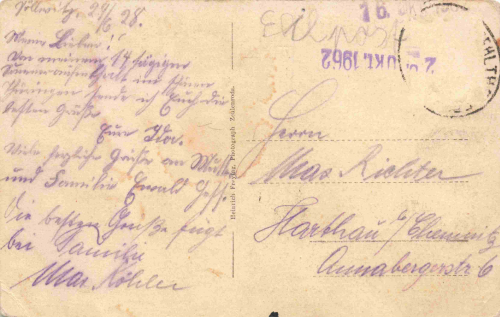 Zollwitz, 29/6 28.
Meine Lieben!
Von meinem 14 tägigen
Sommeraufenthalte im schönen
Thüringen sende ich Euch die
besten Grüße
Eure Ida.
Viele herzliche Grüße an
und Familie Ewald
Die besten Grüße fügt
bei Familie
Max Köhler
Eilpost
16.
2 Okt. 1962
Herrn
Max Richter
Harthau b/Chemnitz
Annabergerstr 6